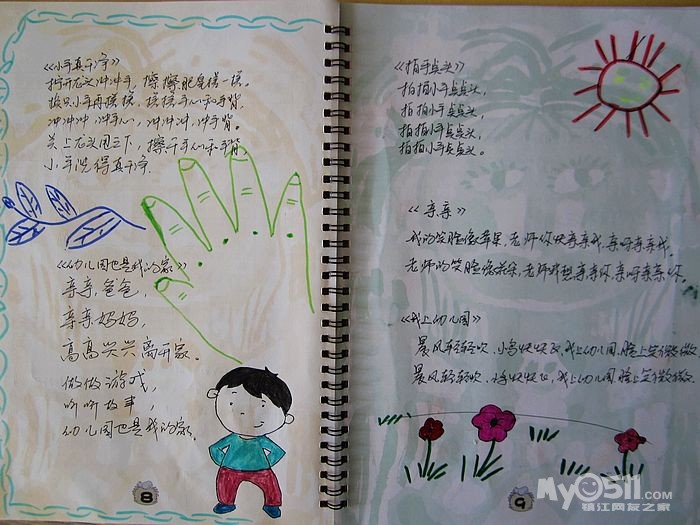 《小手真干净》
拧开龙头冲冲手，擦擦肥皂搓一搓。
换只小手再搓搓，搓搓手心和手背。
冲冲冲，冲手心，冲冲冲，冲手背。
关上龙头甩三下，擦干手心和手背
小手洗得真干净.
《幼儿园也是我的家》
亲亲爸爸，
亲亲妈妈，
高高兴兴离开家。
做做游戏
听听故事，
幼儿园也是我的家。
8
《拍手点头》
拍拍小手点点头，
拍拍小手点点头，
拍拍小手点点头，
拍拍小手点点头。
《亲亲》
我的笑脸像苹果，老师你快亲亲我，亲呀亲亲我。
老师的笑脸像，老师我想亲亲你，亲呀亲亲你。
《我上幼儿园》
晨风轻轻吹，小鸟快快飞，我上幼儿园，脸上笑微微
晨风轻轻吹，小鸟快快飞，我上幼儿园，脸上笑微微。
9
My0511.com
镇江网友之家